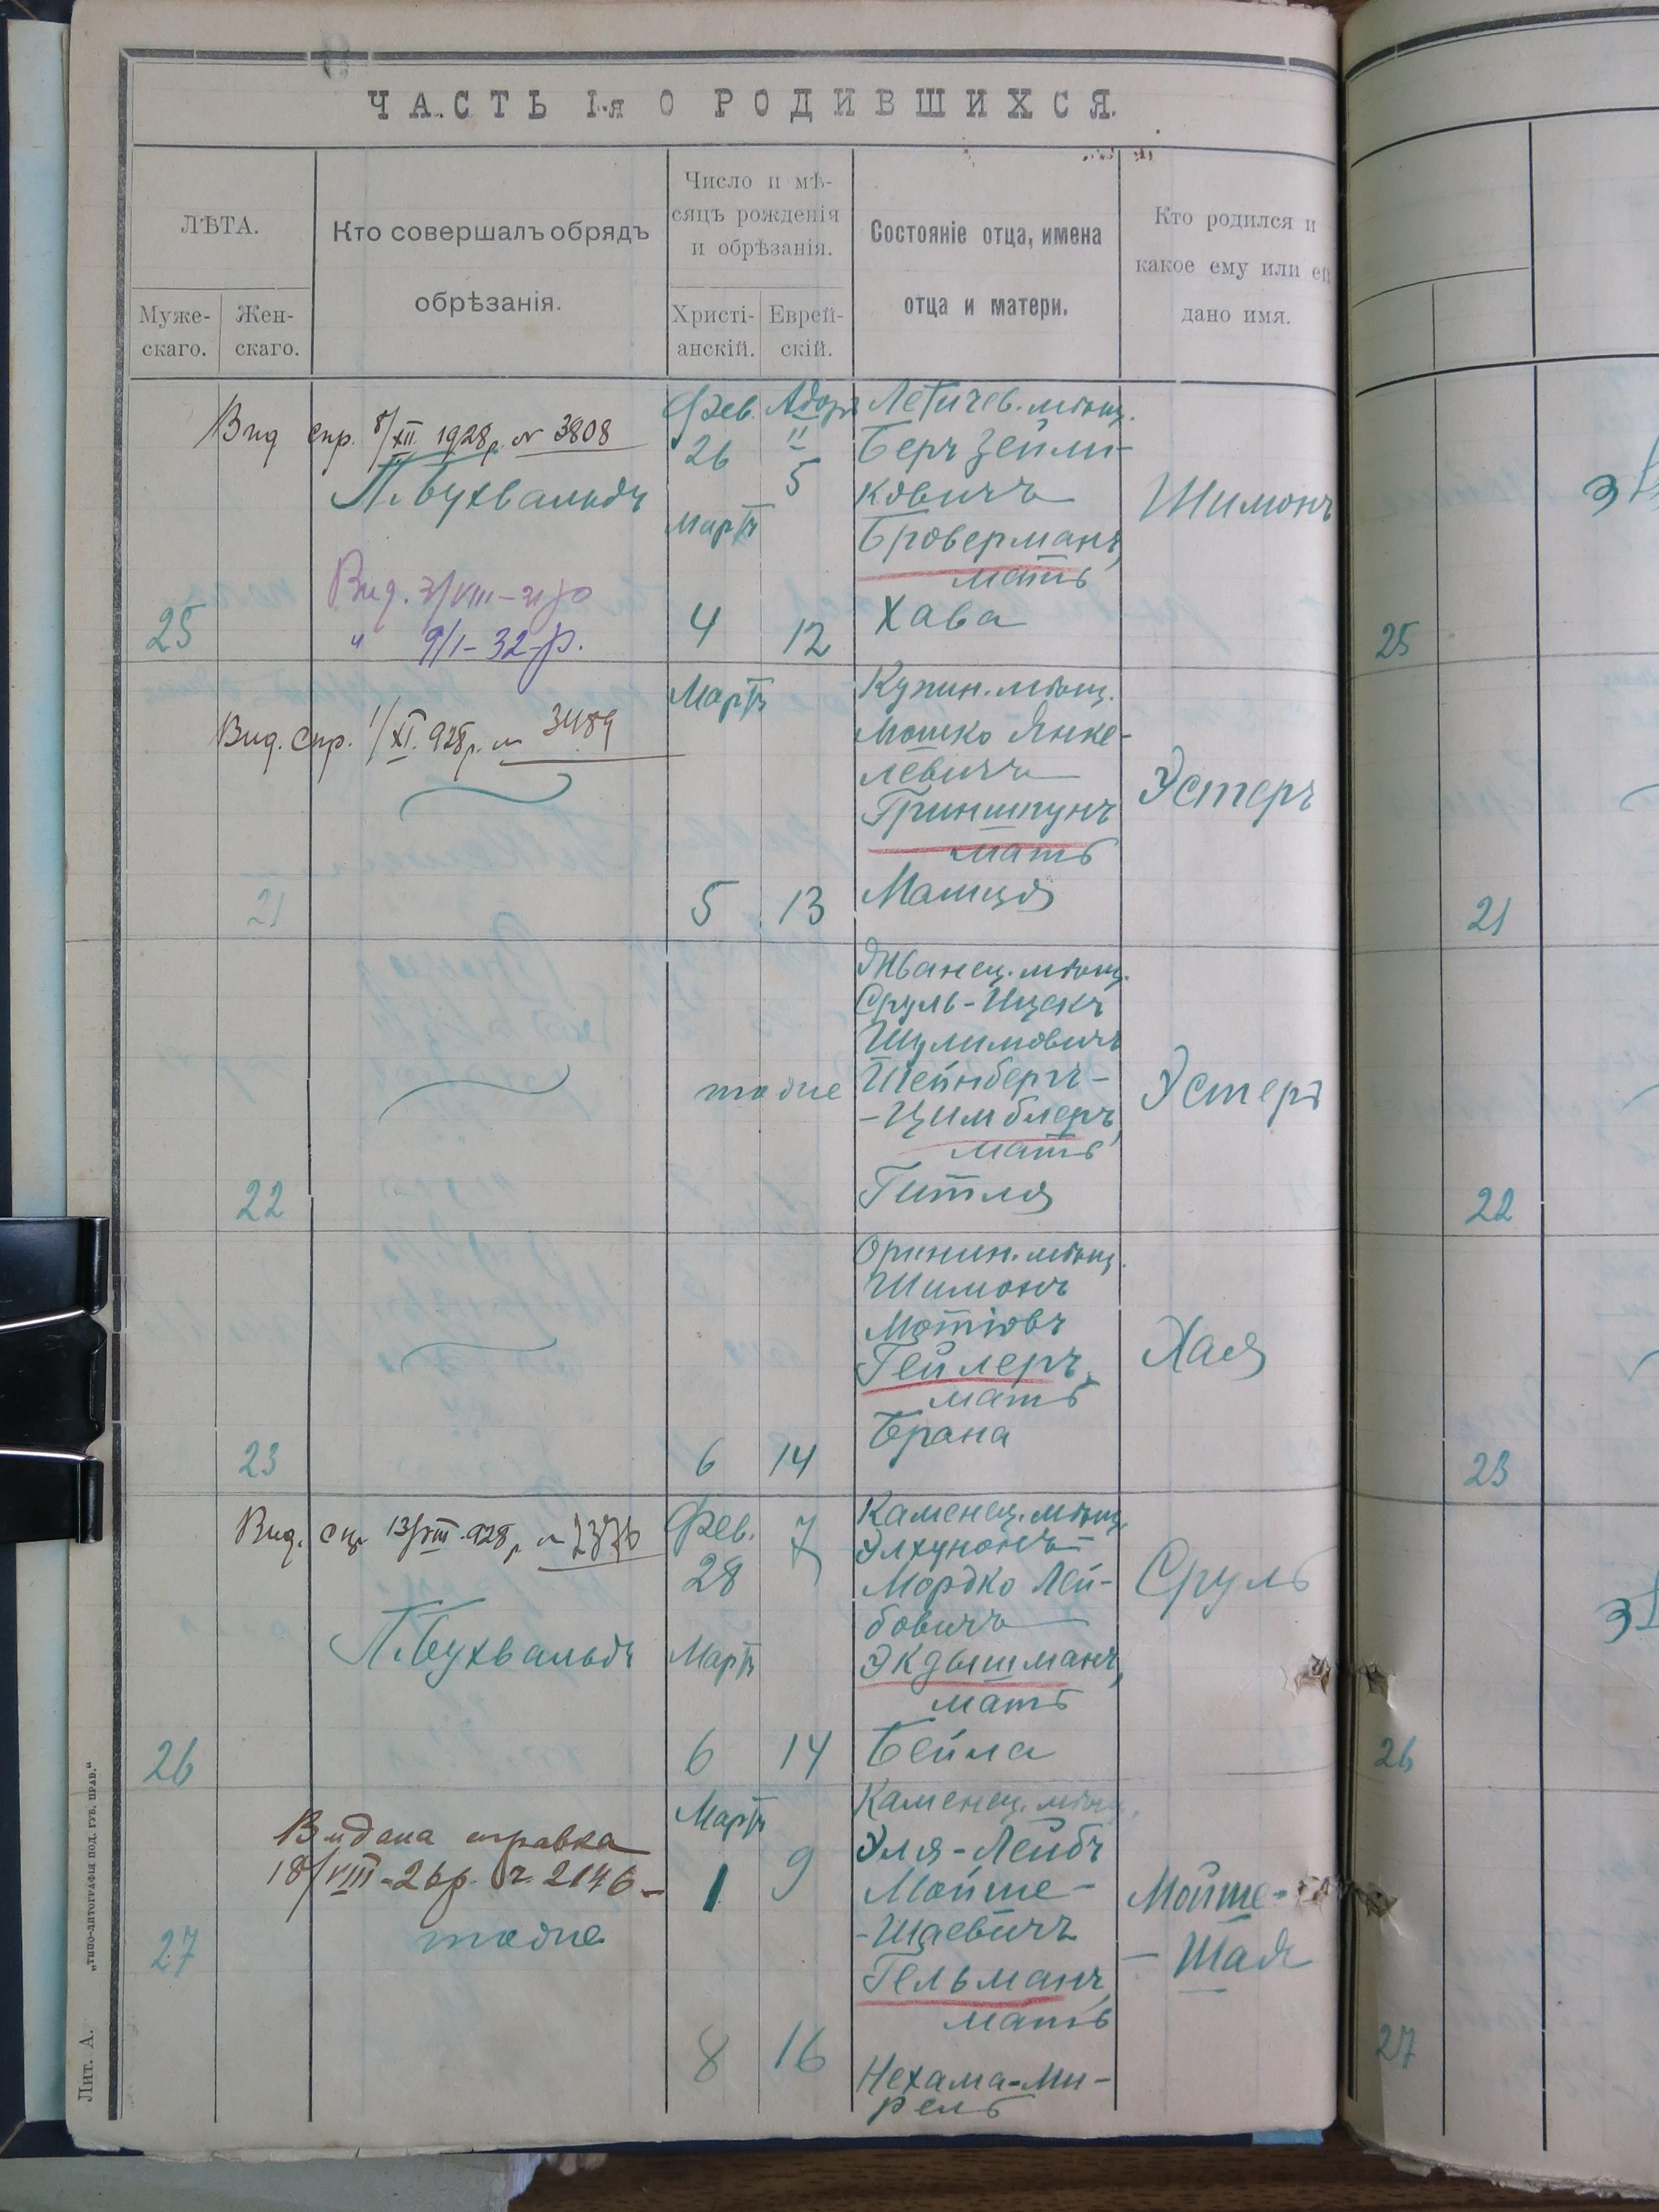 ЧАСТЬ 1-я О РОДИВШИХСЯ.
ЛѢТА.
Муже-
скаго.
Жен-
скаго.
Кто совершалъ обрядъ
обрѣзанія.
Число и мѣ-
сяцъ рожденія
и обрѣзанія.
Христі-
анскій.
Еврей-
скій.
Состояніе отца, имена
отца и матери.
Кто родился и
какое ему или ей
дано имя.
Вид спр. 8/XII 1928р. № 3808
П. Бухвальдъ
Вид. 3/VIII-31р
" 9/I-32-р.
25
Фев. Адаръ
26 II
5
Мартъ
4 12
Летичев. мѣщ.
Беръ Зейли-
ковичъ
Броверманъ,
мать
Хава
Шимонъ
25
Вид. спр. 1/XI. 928р. № 3489
21
Мартъ
5 13
Купин. мѣщ.
Мошко Янке-
левичъ
Гриншпунъ
мать
Маиця
Эстеръ
21
22
тоже
Жванец. мѣщ.
Сруль-Ицекъ
Шулимовичъ
Шейнбергъ-
-Цимблеръ,
мать
Гитля
Эстеръ
22
23
6 14
Оринин. мѣщ.
Шимонъ
Мотіовъ
Гейлеръ,
мать
Брана
Хая
23
Вид. спр 13/VIII.928р № 2376
П. Бухвальдъ
26
Фев. 7
28
Мартъ
6 14
Каменец. мѣщ.
Элхунонъ-
Мордко Лей-
бовичъ
Экдышманъ,
мать
Бейла
Сруль
26
Видана справка
18/VIII-26р. ч. 2146-
тоже
27
Мартъ
1 9
8 16
Каменец. мѣщ.
Эля-Лейбъ
Мойше-
-Шаевичъ
Гельманъ,
мать
Нехама-Ми-
рель
Мойше-
-Шая
27
Лит. А. „Типо-литографія Под. Губ. Прав.“